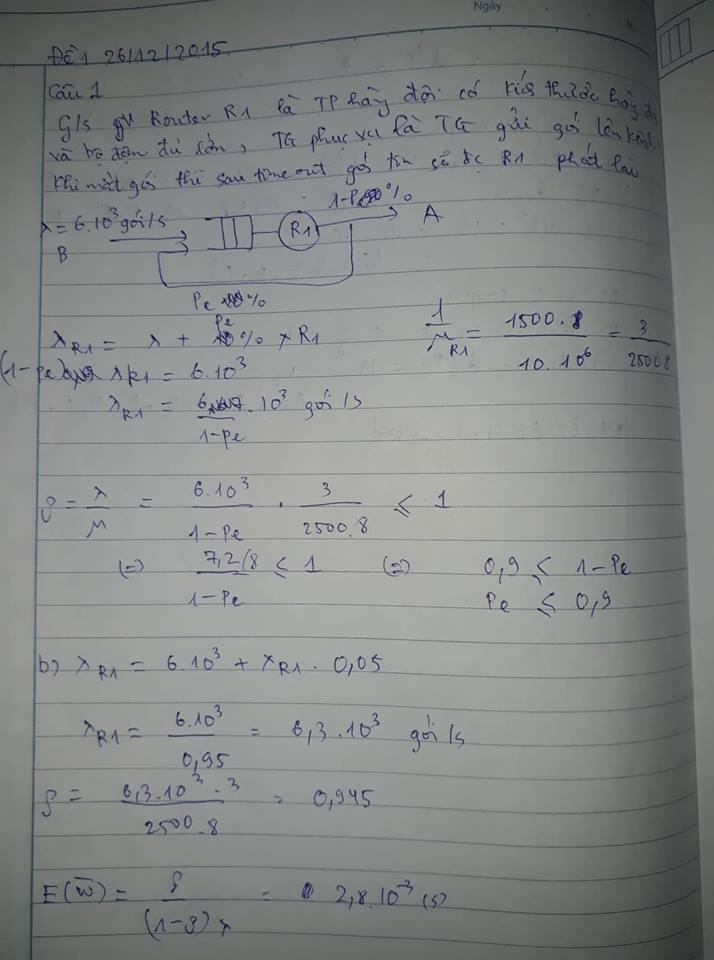 Ngày
Đề 1 26/12/2015
Câu 1
G/s Router R1 là TP hàng đợi có kích thước hàng đợi
và bộ đệm đủ lớn, TG phục vụ là TG gửi gói lên kênh
Khi mất gói thì sau timeout gói tin sẽ đc R1 phát lại
λ = 6.10³ gói/s
1-Pe %
R1
A
B
Pe %
λR1 = λ + Pe % × R1
1/μR1 = 1500.8 / 10.10⁶ = 3 / 2500.8
(1-Pe) λR1 = 6.10³
λR1 = 6 .10³ / 1-Pe gói/s
ρ = λ/μ = 6.10³ / 1-Pe . 3 / 2500.8 ≤ 1
(=) 7,2/8 / 1-Pe ≤ 1 (=) 0,9 ≤ 1-Pe
Pe ≤ 0,9
b) λR1 = 6.10³ + λR1 . 0,05
λR1 = 6.10³ / 0,95 = 6,3.10³ gói/s
ρ = 6,3.10³.3 / 2500.8 = 0,945
E(W̄) = ρ / (1-ρ)λ = 2,8.10⁻³ (s)